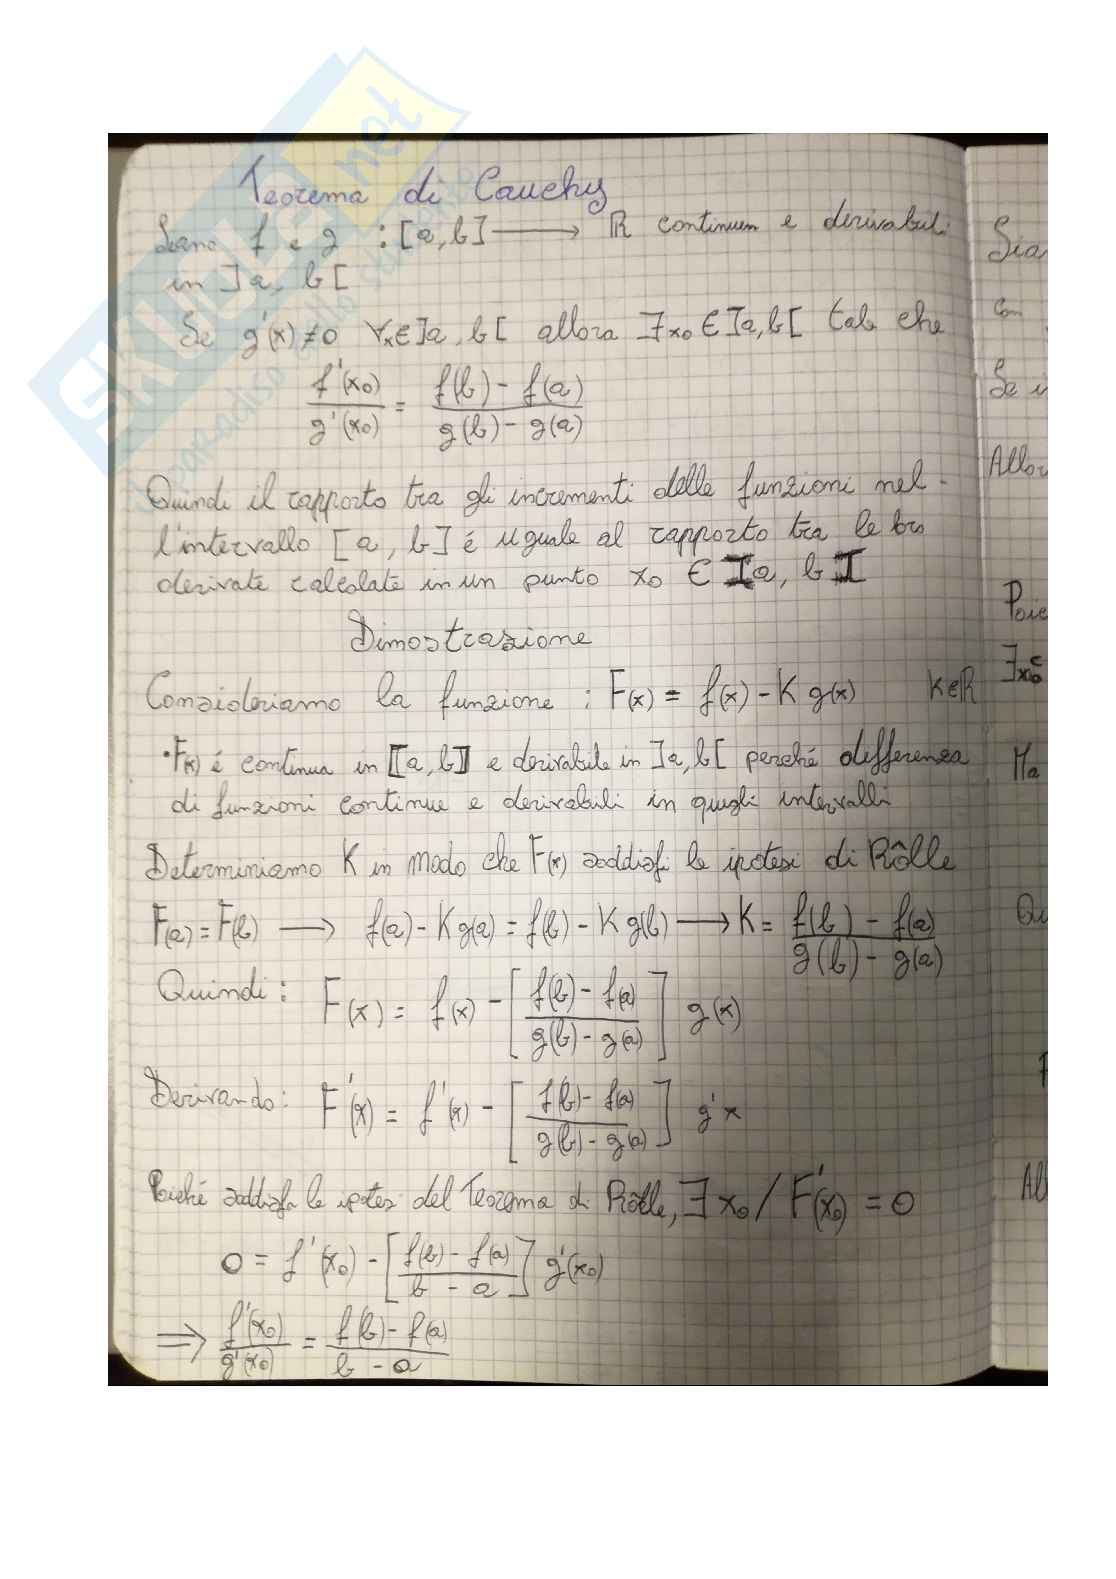 Teorema di Cauchy
Siano f e g : [a, b] ⟶ ℝ continue e derivabili
in ]a, b[
Se g'(x) ≠ 0 ∀x∈]a, b[ allora ∃x₀ ∈ ]a, b[ tale che
f'(x₀) / g'(x₀) = f(b) - f(a) / g(b) - g(a)
Quindi il rapporto tra gli incrementi delle funzioni nel-
l'intervallo [a, b] é uguale al rapporto tra le loro
derivate calcolate in un punto x₀ ∈ ]a, b[
Dimostrazione
Consideriamo la funzione : F(x) = f(x) - K g(x) K∈ℝ
• F(x) é continua in [a, b] e derivabile in ]a, b[ perché differenza
di funzioni continue e derivabili in quegli intervalli
Determiniamo K in modo che F(x) soddisfi le ipotesi di Rôlle
F(a) = F(b) ⟶ f(a) - K g(a) = f(b) - K g(b) ⟶ K = f(b) - f(a) / g(b) - g(a)
Quindi: F(x) = f(x) - [f(b) - f(a) / g(b) - g(a)] g(x)
Derivando: F'(x) = f'(x) - [f(b) - f(a) / g(b) - g(a)] g'x
Poiché soddisfa le ipotesi del Teorema di Rôlle, ∃ x₀ / F'(x₀) = 0
0 = f'(x₀) - [f(b) - f(a) / b - a] g'(x₀)
⟹ f'(x₀) / g'(x₀) = f(b) - f(a) / b - a
Sia
con
Se i
Allor
Poic
∃x₀
Ma
Qu
F
All
SKUOLA.net
il paradiso dello studente